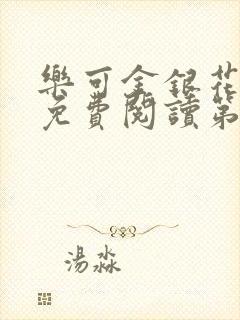 樂可金銀花
免費閱讀第
湯淼